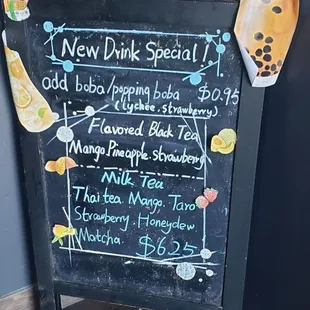 New Drink Special!
add boba/popping boba $0.95
(lychee, strawberry)
Flavored Black Tea
Mango.Pineapple.strawberry
Milk Tea
Thai tea. Mango. Taro
Strawberry. Honeydew
Matcha. $6.25